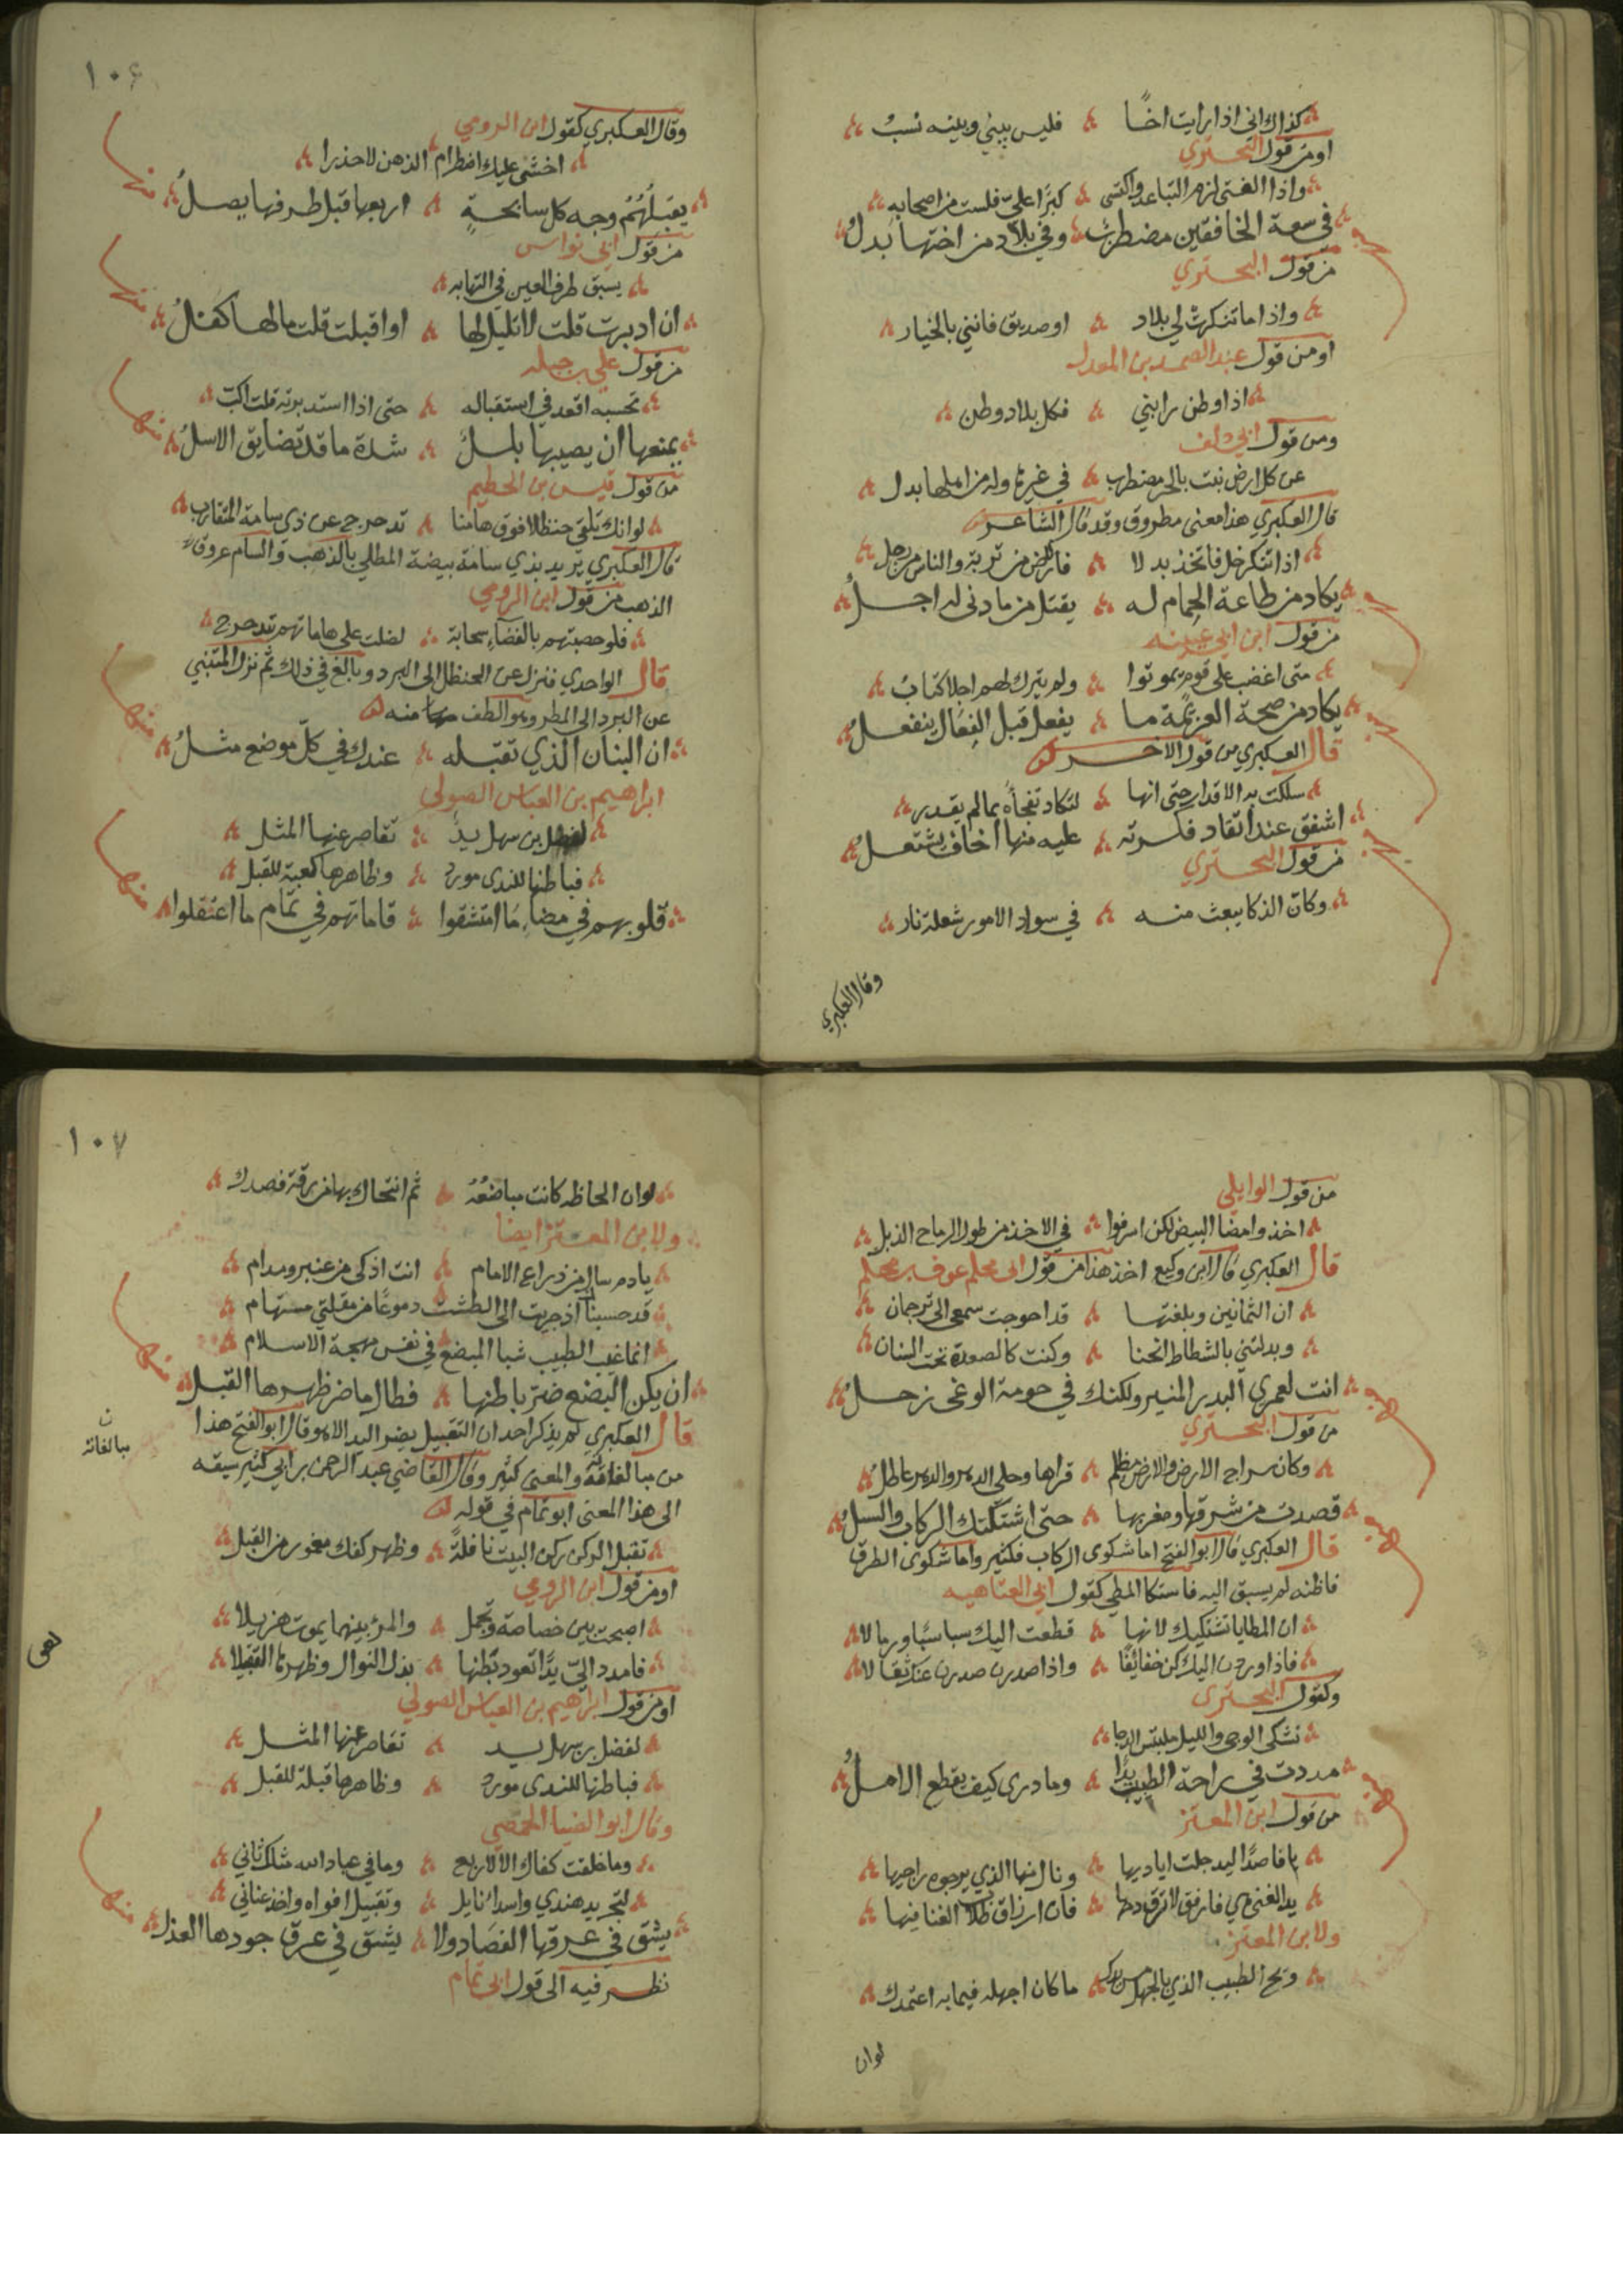 كذاك اني اذا رايت اخًا فليس بيني وبينه نسبُ
او من قول البحتري
واذا الفتى لزم التباعد واكتسى كبرًا عليّ فلست من اصحابه
في سعة الخافقين مضطربٌ وفي بلاد من اختها بدلُ
من قول البحتري
واذا ما تنكرت لي بلاد او صديق فانني بالخيار
او من قول عبد الصمد بن المعدل
اذا وطن رابني فكل بلاد وطن
ومن قول ابي دلف
عن كل ارض نبت بالحر مضطرب في غيرها وله من اهلها بدل
قال العكبري هذا معنى مطروق وقد قال الشاعر
اذا تنكر خل فاتخذ بدلا فالارض من تربة والناس من رجل
يكاد من طاعة الحمام له يقتل من ما دنى له اجلُ
من قول ابن ابي عيينه
متى اغضب على قوم يموتوا ولم يترك لهم اجلا كتابُ
يكاد من صحة العزيمة ما يفعل قبل الفعال ينفعلُ
قال العكبري من قول الاخر
سلكت به الاقدار حتى انها لتكاد تفجأه بما لم يقدر
اشفق عند اتقاد فكرته عليه منها اخاف يشتعلُ
من قول البحتري
وكان الذكا يبعث منه في سواد الامور شعلة نار
وقال العكبري
١٠٦
وقال العكبري كقول ابن الرومي
اخشى عليك اضطرام الذهن لا حذرا
يقبلُهُم وجه كل سابحةٍ اربعها قبل طرفها يصلُ
منها
من قول ابي نواس
يسبق طرف العين في التهابه
ان ادبرت قلت لا تليل لها او اقبلت قلت ما لها كفلُ
منها
من قول علي بن جبله
تحسبه اقعد في استقباله حتى اذا استدبرته قلت اكبّ
يمنعها ان يصيبها بللٌ شدة ما قد تضايق الاسلُ
منها
من قول قيس بن الخطيم
لو انك تلقي حنظلا فوق هامنا تدحرج عن ذي سامة المتقارب
قال العكبري يريد بذي سامة بيضة المطلي بالذهب والسام عروق
الذهب من قول ابن الرومي
فلو حصبتهم بالفضاء سحابة لضلت على هاماتهم تتدحرج
قال الواحدي فنزل عن الحنظل الى البرد وبالغ في ذلك ثم نزل المتنبي
عن البرد الى المطر وهو الطف منه
ان البنان الذي تقبله عندك في كلّ موضع مثلُ
منها
ابراهيم بن العباس الصولي
لفضل بن سهل يدٌ تقاصر عنها المثل
فباطنها للندى مورد وظاهرها كعبة للقبل
قلوبهم في مضاءِ ما امتشقوا قاماتهم في تمام ما اعتقلوا
منها
من قول الوايلي
اخذوا مضا البيض لكن اسرفوا في الاخذ من طول الرماح الذبل
قال العكبري قال ابن وكيع اخذ هذا من قول ابي محلم عوف بن محلم
ان الثمانين وبلغتها قد احوجت سمعي الى ترجمان
وبدلتني بالشطاط انحنا وكنت كالصعدة تحت السنان
انت لعمري البدر المنير ولكنك في حومة الوغى زحلُ
منها
من قول البحتري
وكان سراج الارض والارض مظلم قراها وحلي الدهر والدهر عاطل
قصدت من شرقها ومغربها حتى اشتكتك الركاب والسبلُ
منها
قال العكبري قال ابو الفتح اما شكوى الركاب فكثير واما شكوى الطرق
فاظنه لم يسبق اليه فاشتكا المطي كقول ابي العتاهيه
ان المطايا تشتكيك لانها قطعت اليك سباسبًا ورمالا
فاذا وردن اليك كن خفائفًا واذا صدرن صدرن عنك ثقالا
وكقول البحتري
تشكى الوجى والليل ملتبس الدجا
مددت في راحة الطبيب يدًا وما درى كيف يقطع الاملُ
منها
من قول ابن المعتز
يا فاصدًا ليد جلت اياديها ونال منها الذي يرجوه راجيها
يد الغنى هي فارفق لا ترق دمها فان ارزاق طلاب الغنا فيها
ولابن المعتز
ويح الطبيب الذي بالجهل مس يدك ما كان اجهله فيما به اعتمدك
لوان
١٠٧
لو ان الحاظه كانت مباضعُهُ ثم انتحاك بها من رقة فصدك
ولابن المعتز ايضا
يا دم سال من ذراع الامام انت اذكى من عنبر ومدام
قد حسبناك اذ جريت الى الطشت دموعًا من مقلتي مستهام
انما غيب الطبيب شبا المبضع في نفس مهجة الاسلام
ان يكن البضع ضر باطنها فطالما ضر ظهرها القبل
منها
قال العكبري لم يذكر احد ان التقبيل يضر اليد الا هو وقال ابو الفتح هذا
من مبالغاته والمعنى كثير وقال القاضي عبد الرحمن بن ابي كثير سبقه
ن
مبالغاته
الى هذا المعنى ابو تمام في قوله
تقبل الركن ركن البيت نافلةً وظهر كفك معمور من القبل
او من قول ابن الرومي
اصبحت بين خصاصة وتجمل والمرء بينهما يموت هزيلا
فامدد اليّ يدًا تعود بطنها بذل النوال وظهرها التقبيلا
او من قول ابراهيم بن العباس الصولي
لفضل بن سهل يد تقاصر عنها المثل
فباطنها للندى مورد وظاهرها قبلة للقبل
وقال ابو الضيا الحمصي
وما خلقت كفاك الا لاربع وما في عباد الله مثلك ثاني
لتجريد هندي واسدا نايل وتقبيل افواه واخذ عناني
يشق في عرقها الفصاد ولا يشق في عرق جودها العذل
منها
نظر فيه الى قول ابي تمام